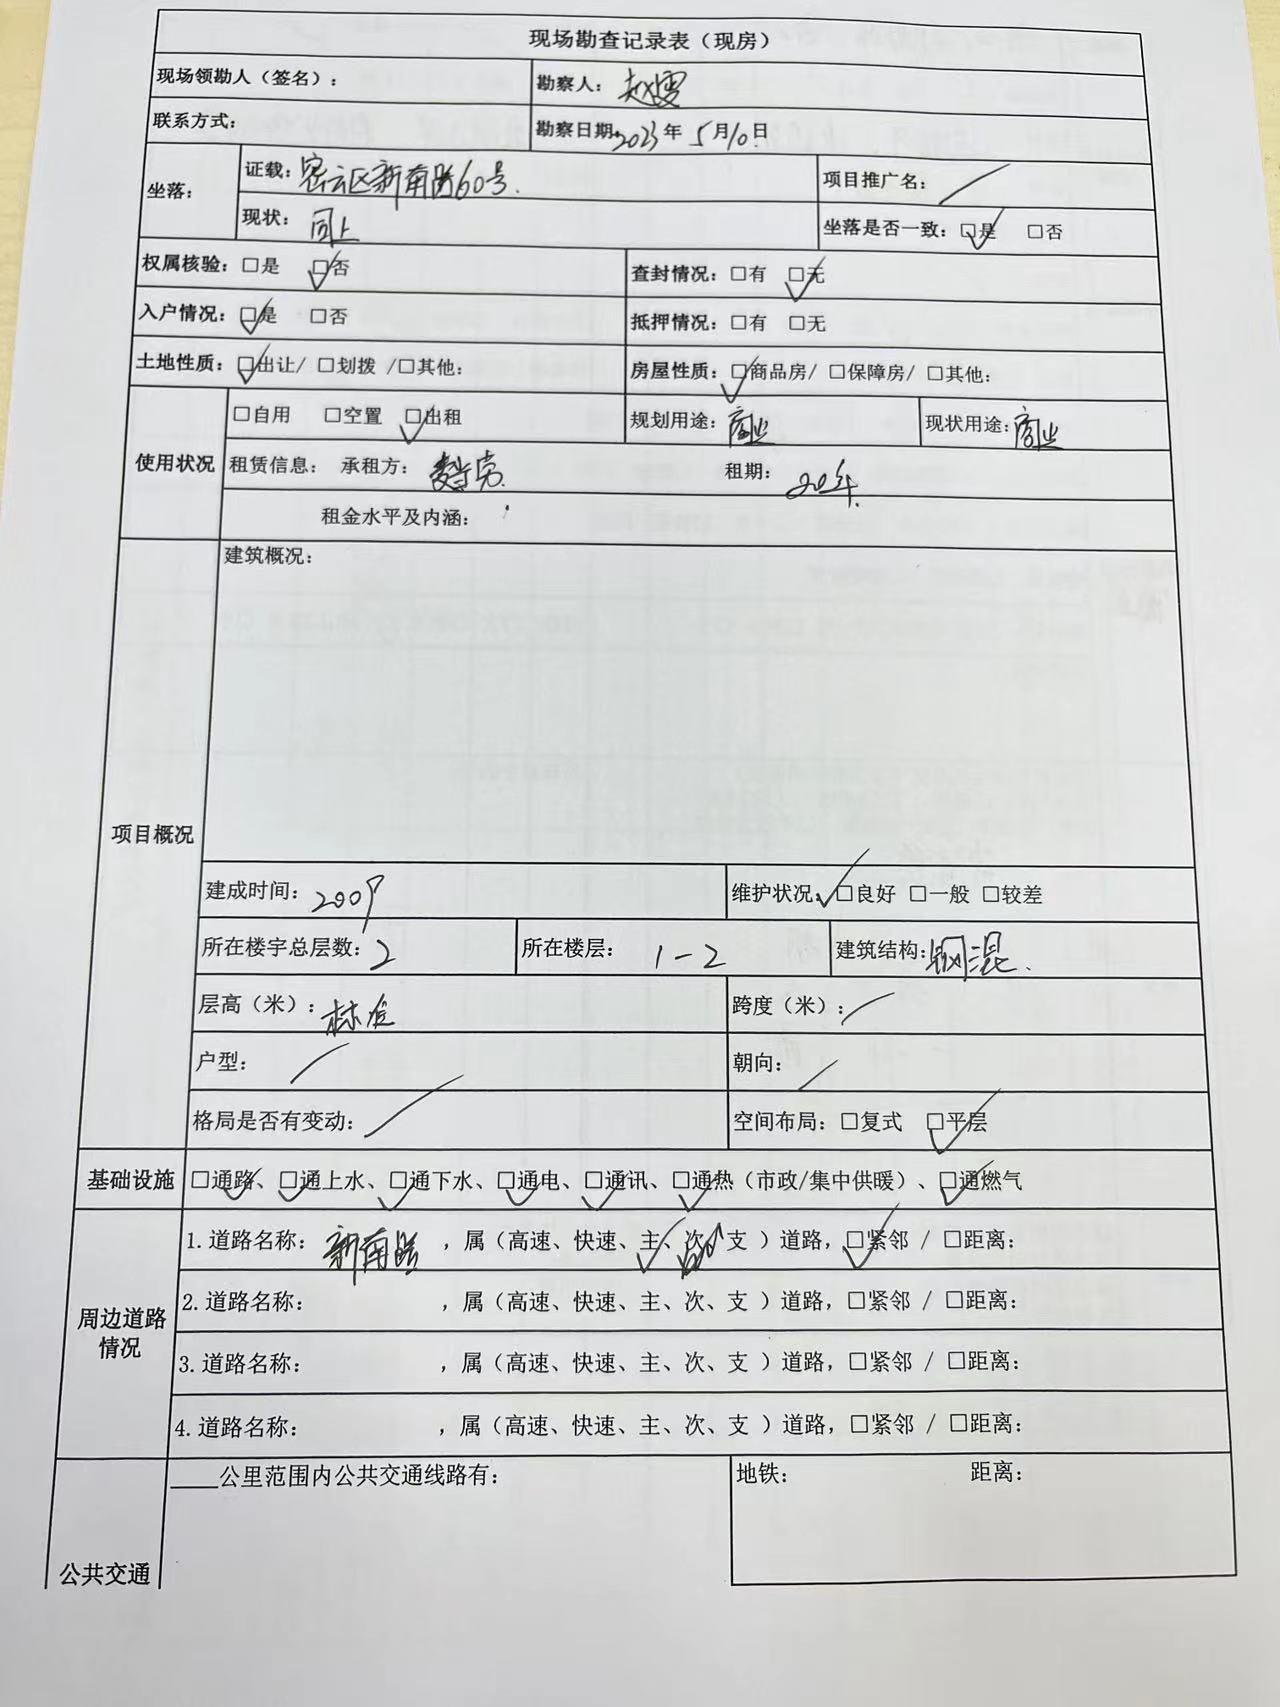 现场勘查记录表（现房）
现场领勘人（签名）： 勘察人：赵雯
联系方式： 勘察日期：2023年5月10日
坐落： 证载：密云区新南路60号. 项目推广名：
现状：同上 坐落是否一致：☑是 □否
权属核验：□是 ☑否 查封情况：□有 ☑无
入户情况：☑是 □否 抵押情况：□有 □无
土地性质：☑出让/ □划拨 /□其他： 房屋性质：☑商品房/ □保障房/ □其他：
使用状况 □自用 □空置 ☑出租 规划用途：商业 现状用途：商业
租赁信息： 承租方： 租期：20年.
租金水平及内涵：
项目概况 建筑概况：
建成时间：2009 维护状况：☑良好 □一般 □较差
所在楼宇总层数：2 所在楼层：1-2 建筑结构：钢混.
层高（米）：标准 跨度（米）：
户型： 朝向：
格局是否有变动： 空间布局：□复式 ☑平层
基础设施 ☑通路、☑通上水、☑通下水、☑通电、☑通讯、☑通热（市政/集中供暖）、☑通燃气
周边道路情况 1.道路名称：新南路，属（高速、快速、主、次、支 ）道路，☑紧邻 / □距离：
2.道路名称： ，属（高速、快速、主、次、支 ）道路，□紧邻 / □距离：
3.道路名称： ，属（高速、快速、主、次、支 ）道路，□紧邻 / □距离：
4.道路名称： ，属（高速、快速、主、次、支 ）道路，□紧邻 / □距离：
公共交通 ____公里范围内公共交通线路有： 地铁： 距离：